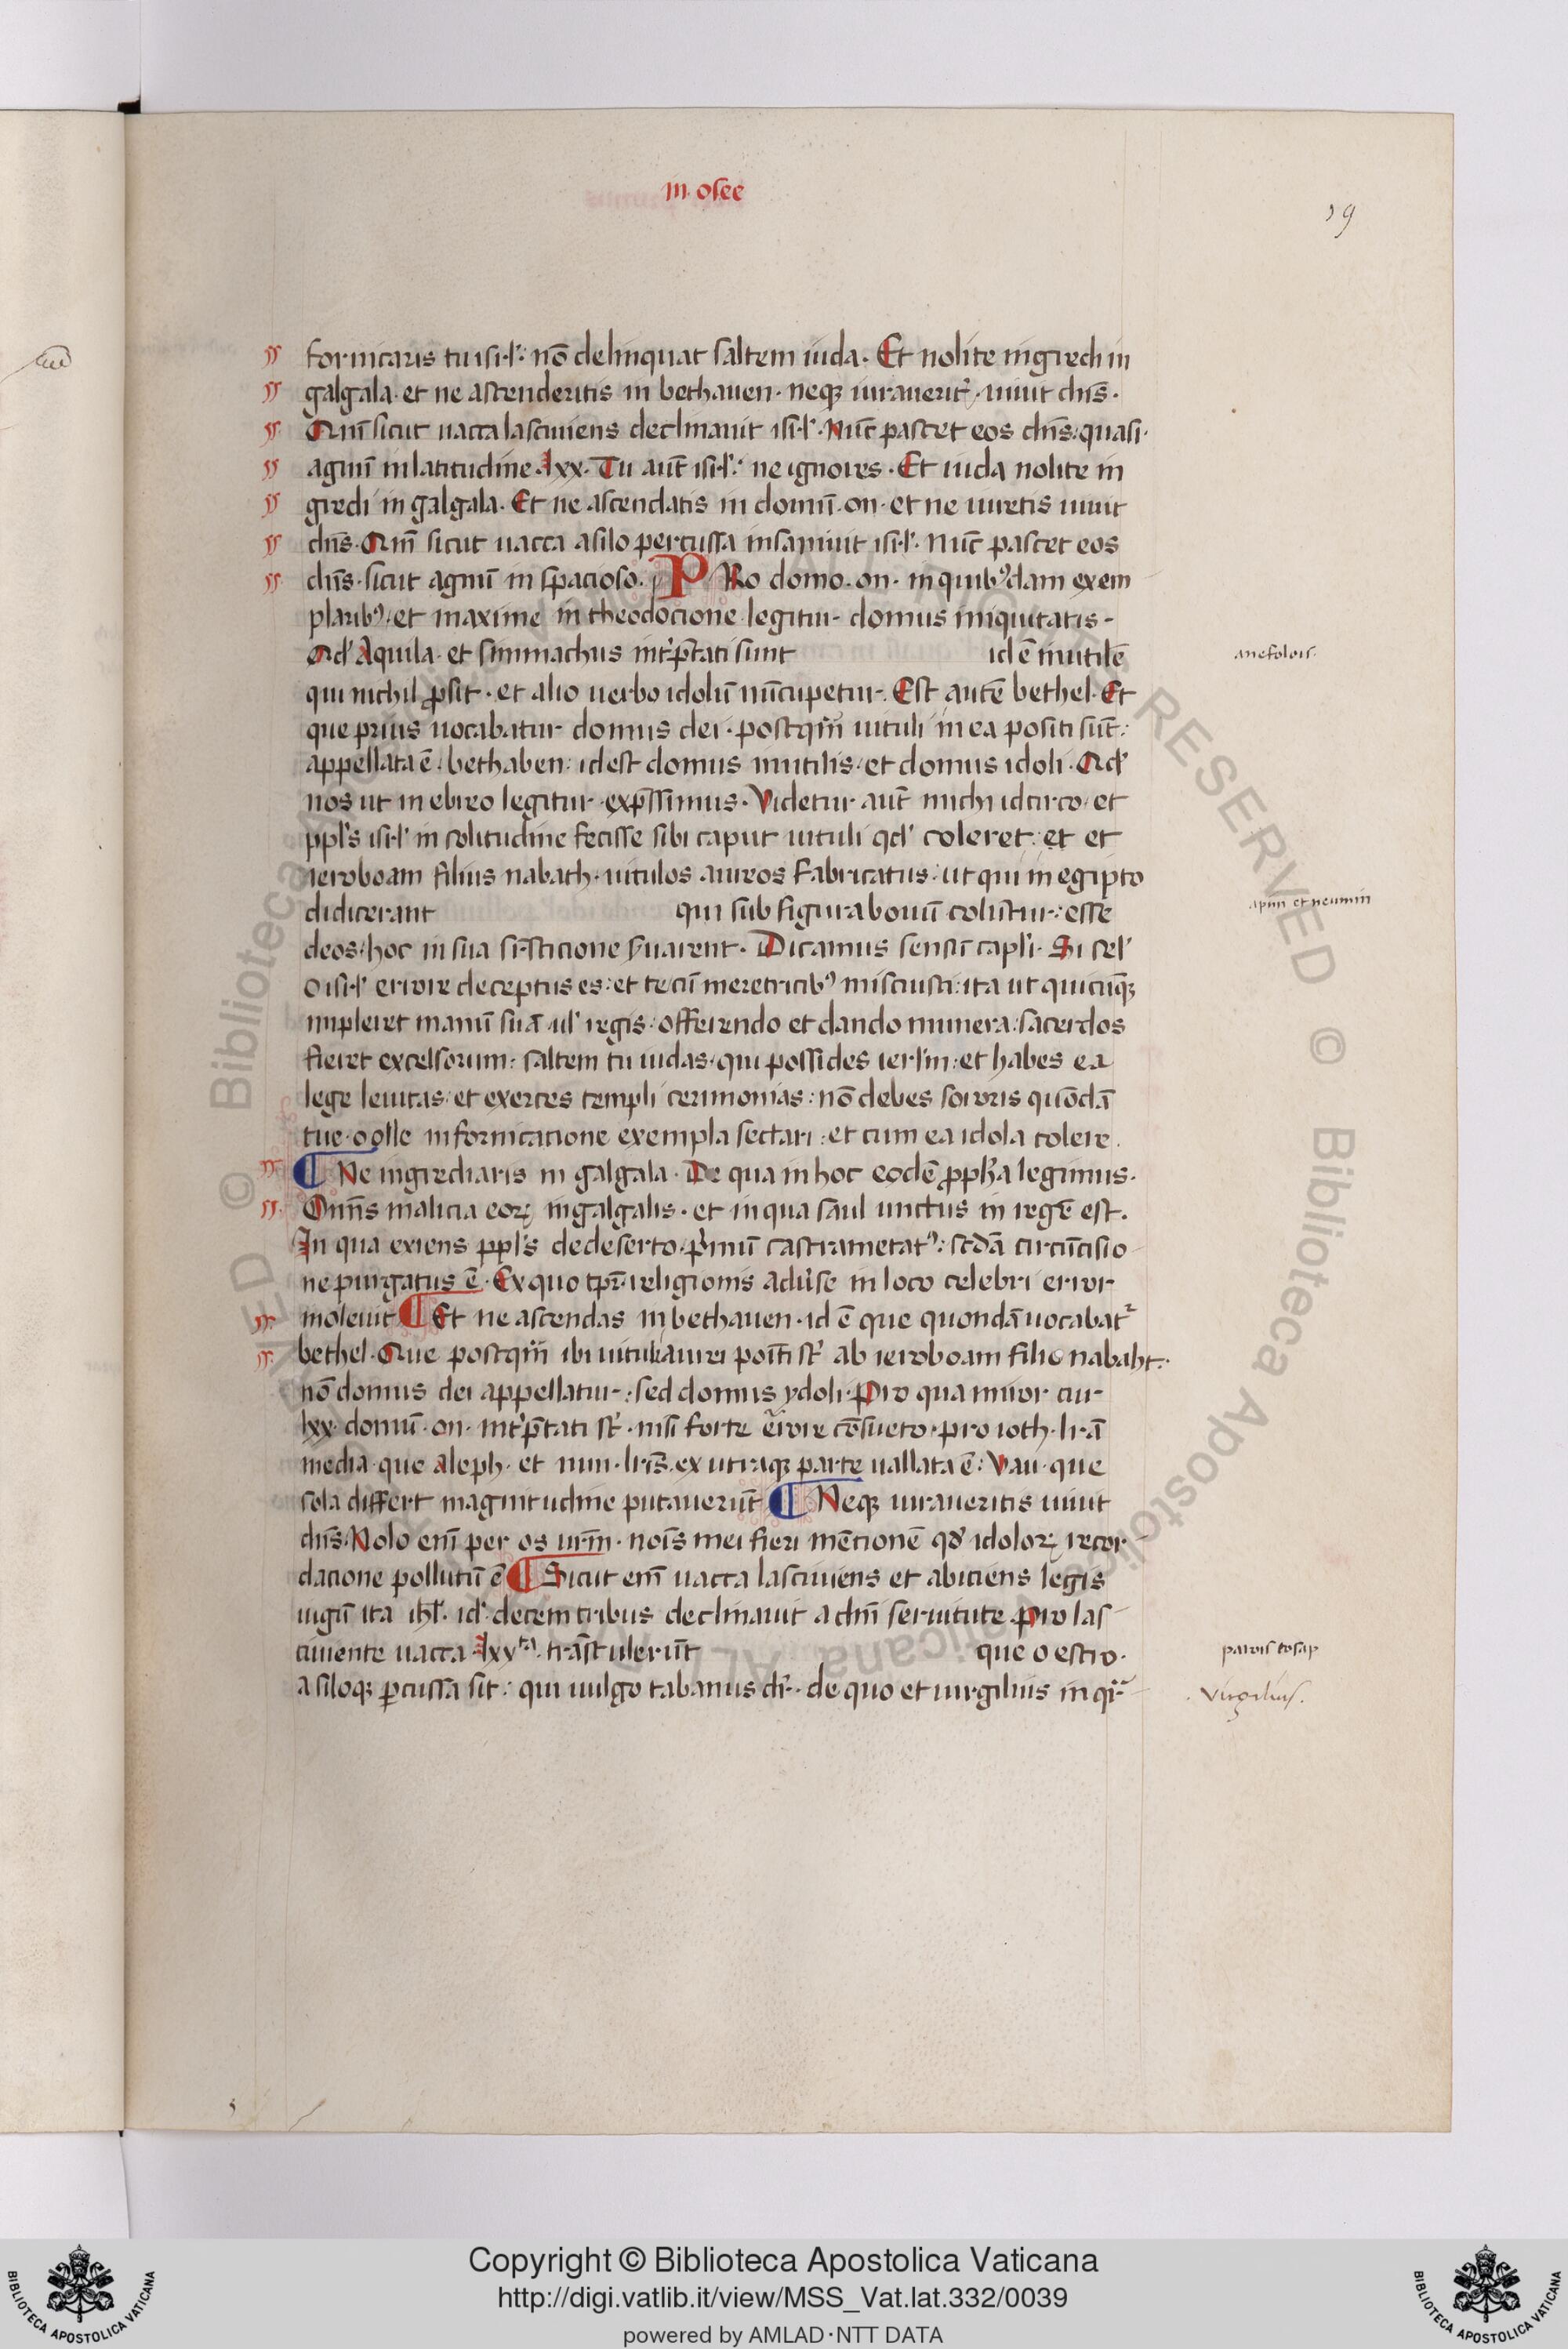 in osee
19
fornicaris tu isr̃l: nõ delinquat saltem iuda. Et nolite ingredi in
galgala. et ne ascenderitis in bethauen. neqꝫ iuraueritꝭ. uiuit dñs.
Qm̃ sicut uacca lasciuiens declinauit isr̃l. Nũc pascet eos dñs: quasi
agnũ in latitudine. lxx. Tu aut̃ isr̃l: ne ignores. Et iuda nolite in
gredi in galgala. Et ne ascendatis in domũ. on. et ne iuretis uiuit
dñs. Qm̃ sicut uacca asilo percussa insaniuit isr̃l. Nũc pascet eos
dñs. sicut agnũ in spacioso. PRo domo. on. in quibꝰdam exem
plaribꝰ. et maxime in theodocione legitur domus iniquitatis
Qd̾ Aquila. et simmachus int̾p̃tati sunt id ẽ inutilẽ
anefolois.
qui nichil ꝓsit. et alio uerbo idolũ nũcupetur. Est autẽ bethel. Et
que prius uocabatur domus dei. postqm̃ uituli in ea positi sũt:
appellata ẽ. bethaben: id est domus inutilis. et domus idoli. Qd̾
nos ut in ebreo legitur exp̃ssimus. Videtur aut̃ michi idcirco. et
ppl̃s isr̃l in solitudine fecisse sibi caput uituli qd̾ coleret. et et
ieroboam filius nabath. uitulos aureos fabricatus: ut qui in egipto
didicerant qui sub figura bouũ colũtur: esse
apim et neumin
deos. hoc in sua sr̃sticione s̾uarent. Dicamus sensũ capl̃i. Si sel̾
o isr̃l errore deceptus es: et tecũ meretricibꝰ miscuisti: ita ut quicũqꝫ
impleret manũ suã ul̾ regis. offerendo et dando munera. sacerdos
fieret excelsorum: saltem tu iudas. qui possides ierl̃m: et habes ea
lege leuitas. et exerces templi cerimonias: nõ debes sororis quõdã
tue. oolle in fornicatione exempla sectari: et cum ea idola colere.
¶ Ne ingrediaris in galgala. De qua in hoc eodẽ ꝓpħa legimus.
Omñs malicia eoꝝ in galgalis. et in qua saul unctus in regẽ est.
In qua exiens ppl̃s de deserto. p̾mũ castrametatꝰ: scd̃a circũcisio
ne purgatus ẽ. Ex quo tpr̃. religionis adũse in loco celebri error
inoleuit ¶ Et ne ascendas in bethauen. id ẽ que quondã uocabat̾
bethel. Que postqm̃ ibi uituli aurei poĩti st̾ ab ieroboam filio nabaht.
nõ domus dei appellatur: sed domus ydoli. Pro qua miror cur
lxx. domũ. on. int̾p̃tati st̾. nisi forte errore cõsueto. pro ioth. lr̃ã
media. que aleph. et nun. lr̃is. ex utraqꝫ parte uallata ẽ: Vau. que
sola differt magnitudine putauerũt ¶ Neqꝫ iuraueritis uiuit
dñs. Nolo eni᷑ per os ur̃m. nois᷑ mei fieri mẽcionẽ qd̾ idoloꝝ recor
dacione pollutũ ẽ ¶ Sicut em̃ uacca lasciuiens et abiciens legis
iugũ ita iħl. id̾. decem tribus declinauit a dñi seruitute. Pro las
ciuiente uacca. lxxᵗᵃ. trãstulerũt que o estro.
patois tosap
asiloqꝫ ꝑcussa sit: qui uulgo tabanus dr̃. de quo et uirgilius in qr̃
Virgilius.
Copyright © Biblioteca Apostolica Vaticana
http://digi.vatlib.it/view/MSS_Vat.lat.332/0039
powered by AMLAD·NTT DATA
BIBLIOTECA APOSTOLICA VATICANA
BIBLIOTECA APOSTOLICA VATICANA